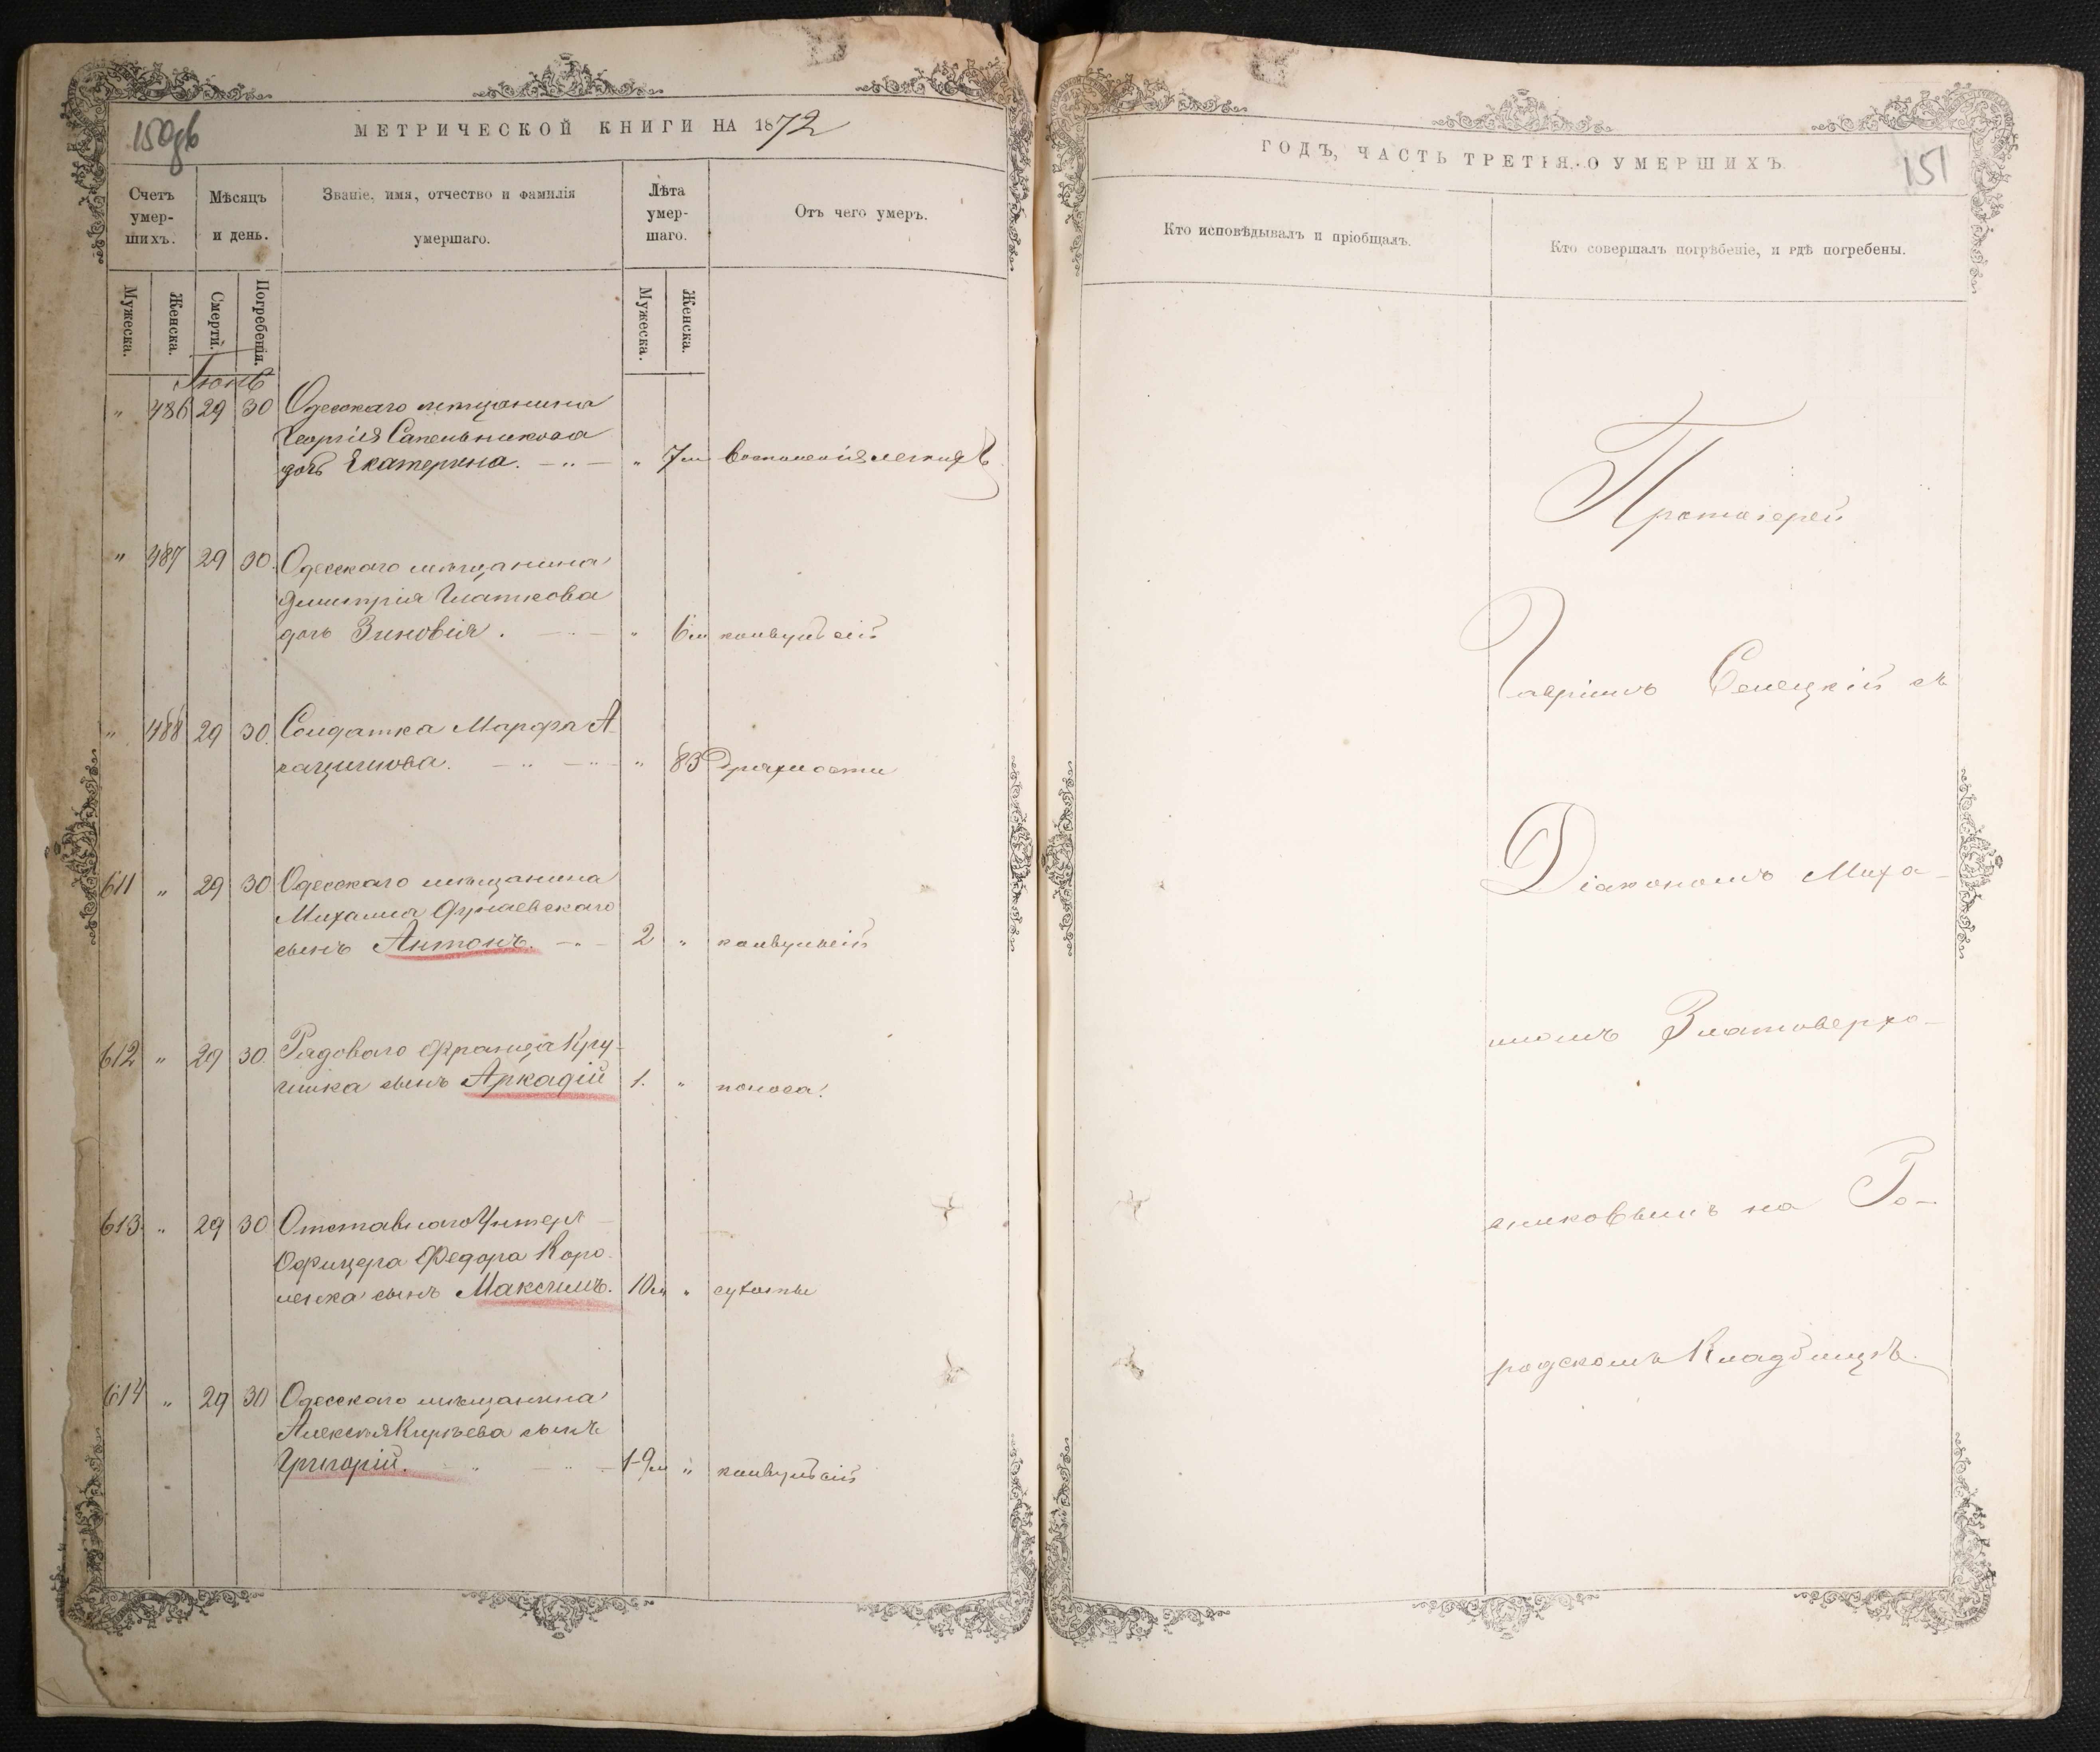 150об
МЕТРИЧЕСКОЙ КНИГИ НА 1872
Счетъ умер-шихъ.
Мѣсяцъ и день.
Званіе, имя, отчество и фамилія умершаго.
Лѣта умер-шаго.
Отъ чего умеръ.
Мужеска.
Женска.
Смерти.
Погребенія.
Мужеска.
Женска.
Іюнь
" 486 29 30 Одесскаго мѣщанина
Георгія Сапельникова
дочь Екатерина. " 7м Воспаленія легкихъ
" 487 29 30. Одесскаго мѣщанина
Димитрія
дочь Зиновія. " 6м конвульсій
" 488 29 30. Солдатка Марфа А-
" 83 Дряхлости
611 " 29 30 Одесскаго мѣщанина
Михаила
сынъ Антонъ. 2 " конвульсій
612 " 29 30. Рядоваго Франца Кру-
сынъ Аркадій 1. " поноса.
613 " 29 30 Отставнаго Унтеръ
Офицера Федора Коро-
ленка сынъ Максимъ. 10м " сухотки
614 " 29 30 Одесскаго мѣщанина
Алексѣя Кирѣева сынъ
Григорій. 1-9м " конвульсій
ГОДЪ, ЧАСТЬ ТРЕТІЯ, О УМЕРШИХЪ.
151
Кто исповѣдывалъ и пріобщалъ.
Кто совершалъ погребеніе, и гдѣ погребены.
Протоіерей
Гавріилъ Селецкій съ
Діакономъ Миха-
иломъ Златоверхо-
никовымъ на Го-
родскомъ Кладбищѣ.